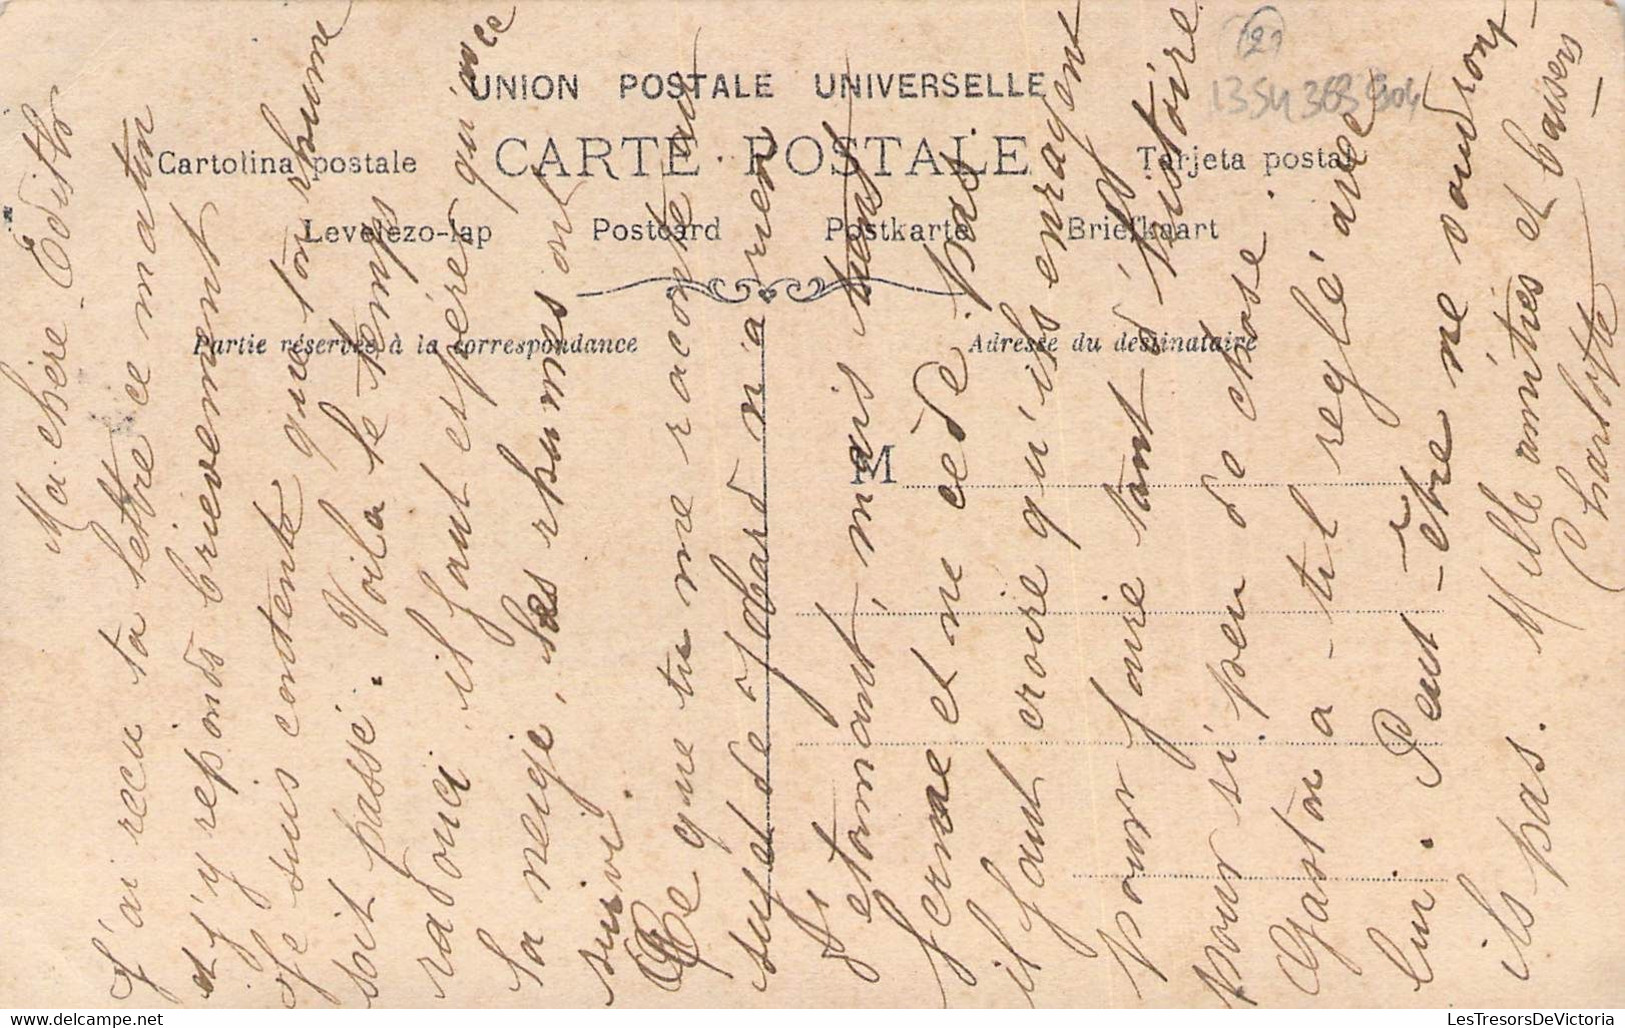 UNION POSTALE UNIVERSELLE
CARTE POSTALE
Cartolina postale
Tarjeta postal
Levelezo-lap
Postcard
Postkarte
Briefkaart
Partie réservée à la correspondance
Adresse du destinataire
M
21
Ma chère Edith
J'ai recu ta lettre ce matin
et j'y reponds brievement
Je suis contente que ton rhume
soit passé. Voila le temps
radouci il faut espérer qu'avec
la neige, les rhumes ont
suivi.
Ce que tu me raconte au
sujet de Jobard n'a rien
d'etonnant, mais tient
ferme et ne cède pas
il faut croire qu'ils enragent
pour faire tant d'histoire
pour si peu de chose.
Gaston a-t-il reglé avec
lui. Peut-être ne voudront
ils pas. Mille amitiés et baisers
Charlotte
LesTresorsDeVictoria